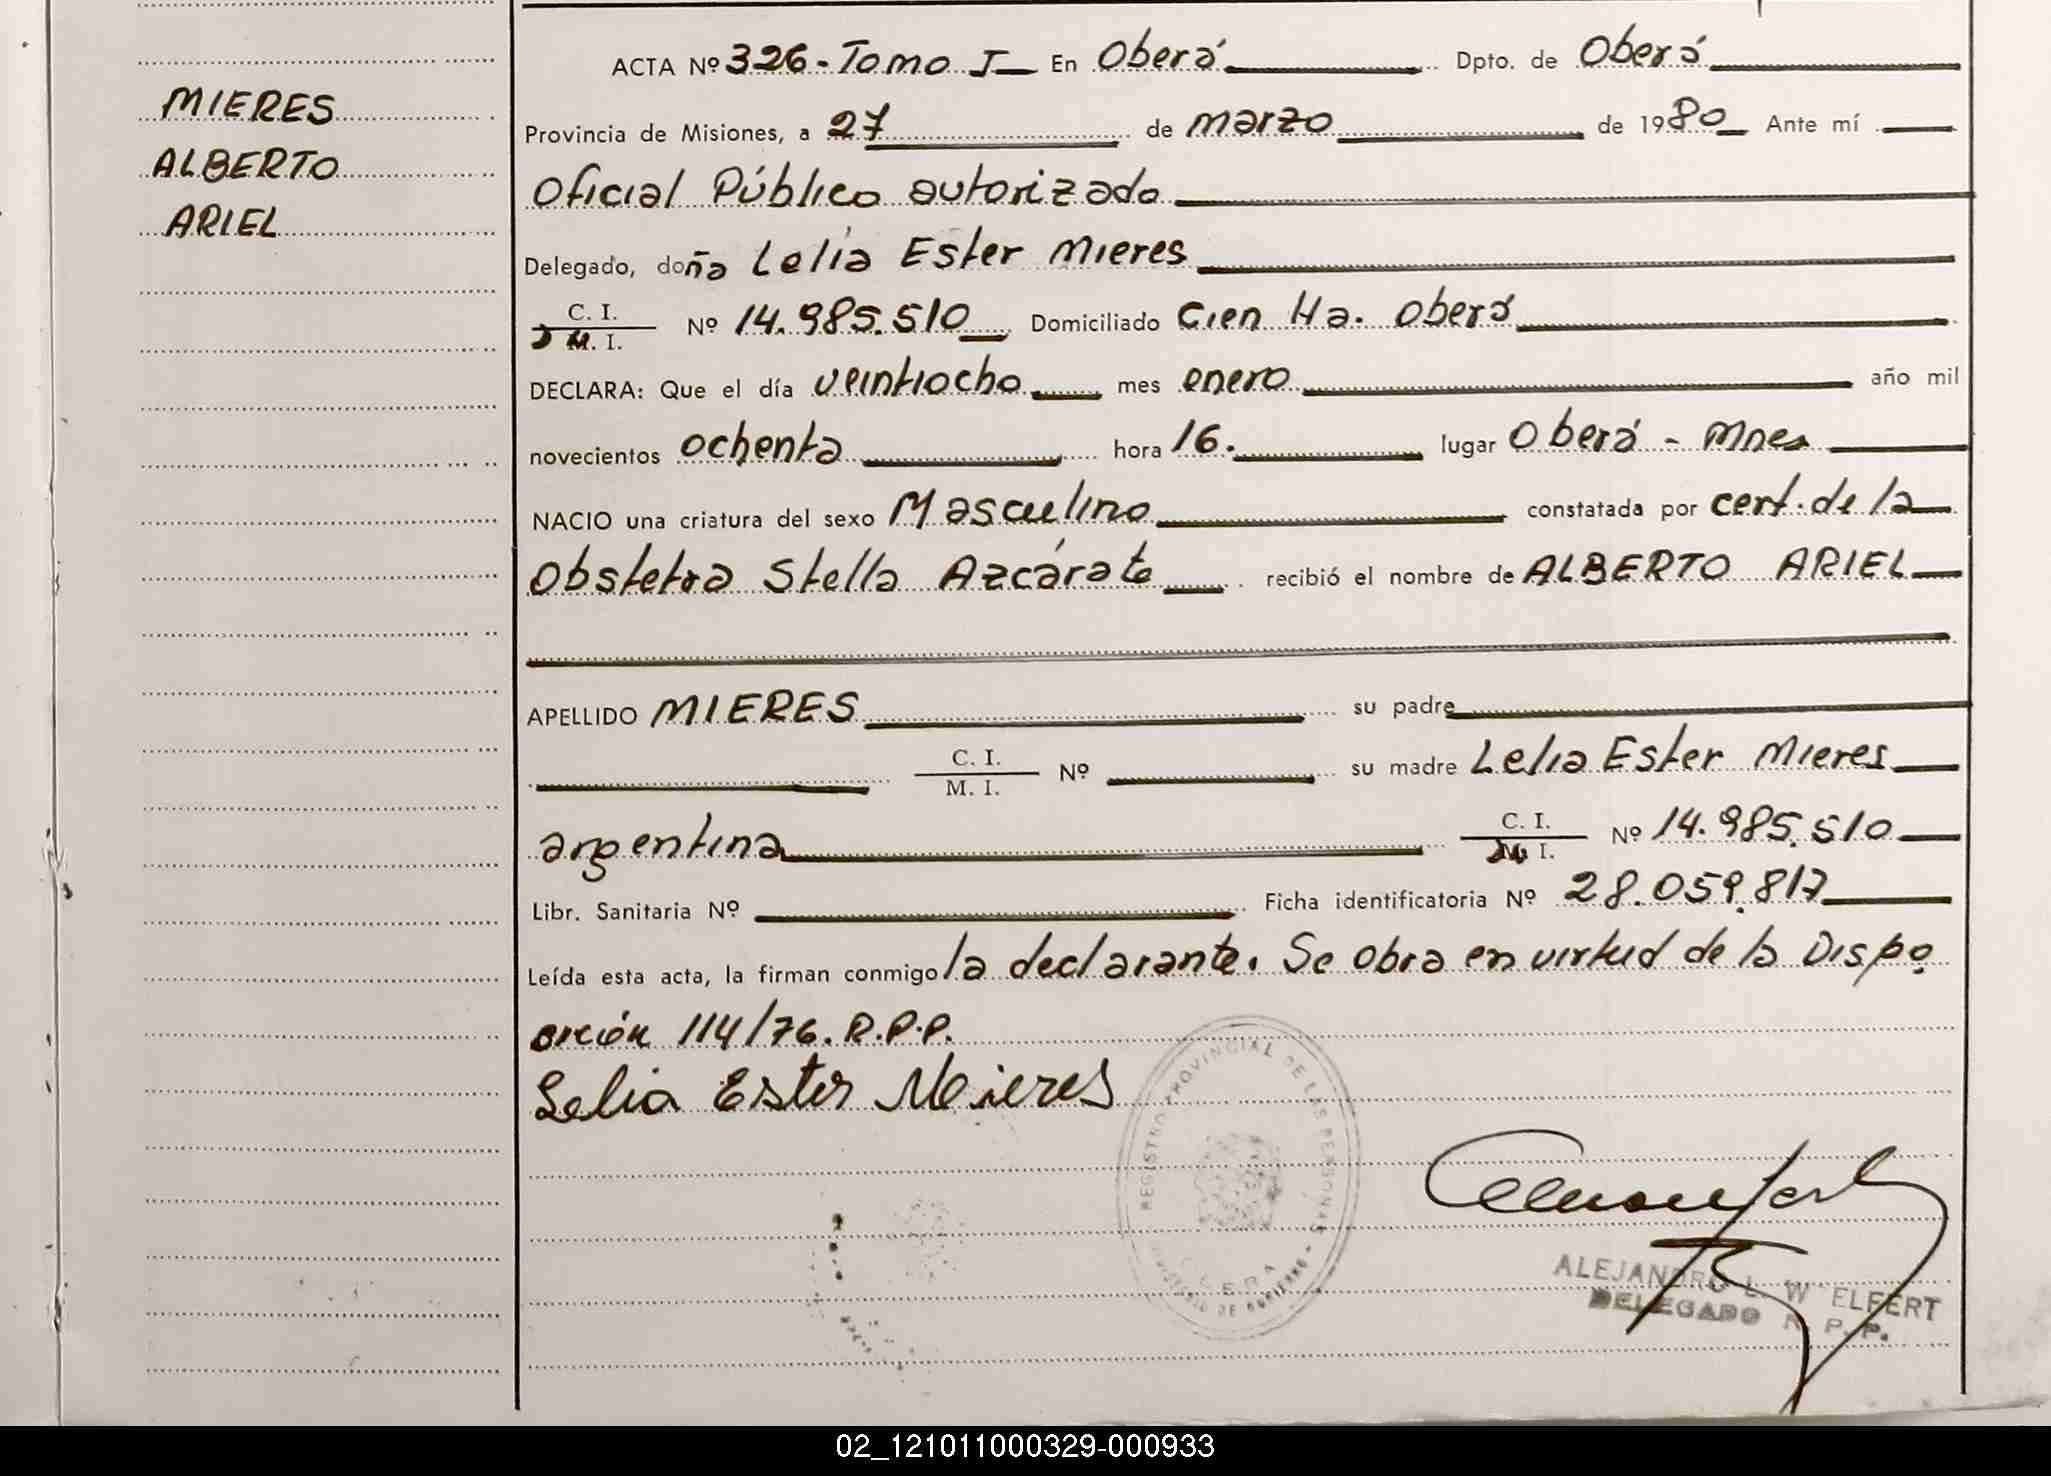 MIERES
ALBERTO
ARIEL
ACTA Nº 326 - Tomo I En Oberá Dpto. de Oberá
Provincia de Misiones, a 27 de marzo de 1980 Ante mí
Oficial Público autorizado
Delegado, doña Lelia Ester Mieres
C. I.
D M. I. Nº 14.985.510 Domiciliado Cien Ha. Oberá
DECLARA: Que el día veintiocho mes enero año mil
novecientos ochenta hora 16. lugar Oberá - Mnes
NACIO una criatura del sexo Masculino constatada por cert. de la
Obstetra Stella Azcárate recibió el nombre de ALBERTO ARIEL
APELLIDO MIERES su padre
C. I.
M. I. Nº su madre Lelia Ester Mieres
argentina C. I.
I. Nº 14.985.510
Libr. Sanitaria Nº Ficha identificatoria Nº 28.059.817
Leída esta acta, la firman conmigo la declarante. Se obra en virtud de la Dispo
sición 114/76. R.P.P.
Lelia Ester Mieres
REGISTRO PROVINCIAL DE LAS PERSONAS
MINISTERIO DE GOBIERNO
OBERA
ALEJANDRO L. W ELFERT
DELEGADO R. P. P.
02_121011000329-000933